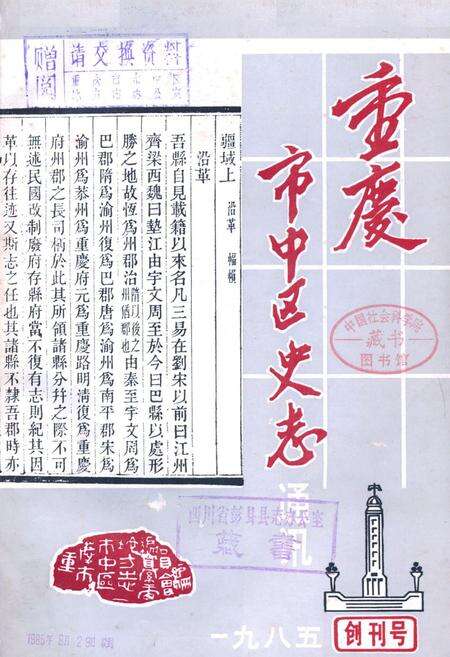 赠阅
请交换资料
重庆
市中区史志
通讯
疆域上 沿革 幅𢄙
沿革
吾縣自見載籍以來名凡三易在劉宋以前曰江州
齊梁西魏曰墊江由宇文周至於今曰巴縣以處形
勝之地故恆爲州郡治隋以後之州僑郡也由秦至宇文周爲
巴郡隋爲渝州復爲巴郡唐爲渝州爲南平郡宋爲
渝州爲恭州爲重慶府元爲重慶路明清復爲重慶
府州郡之長司柄於此其所領諸縣分幷之際不可
無述民國改制廢府存縣府當不復有志則紀其因
革以存往迹又斯志之任也其諸縣不隸吾郡時亦
中国社会科学院
藏书
图书馆
四川省彭县县志办公室
藏书
重庆市
市中区
地方志
编纂委
员会
一九八五
创刊号